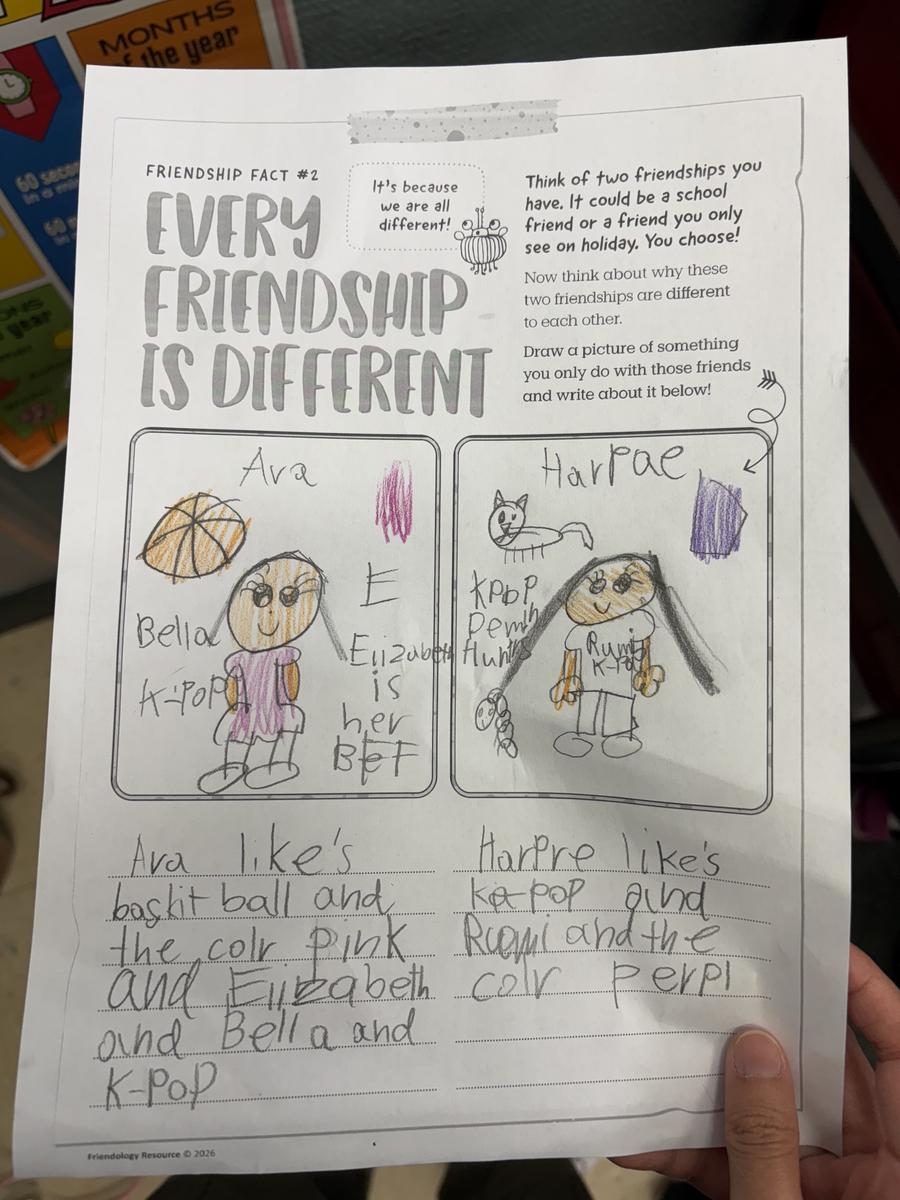 MONTHS
of the year
60 seco
in a min
60 m
in
ONS
year
FRIENDSHIP FACT #2
EVERY
FRIENDSHIP
IS DIFFERENT
It's because
we are all
different!
Think of two friendships you
have. It could be a school
friend or a friend you only
see on holiday. You choose!
Now think about why these
two friendships are different
to each other.
Draw a picture of something
you only do with those friends
and write about it below!
Ava
Bella
K-POP
E
Elizabeth
is
her
BFF
Harpae
KPOP
Demin
Hunts
Rumi
K-Pop
Ava like's
baskit ball and
the colr Pink
and Elizabeth
and Bella and
K-POP
Harpre like's
ka-pop and
Rumi and the
colr perpl
Friendology Resource © 2026